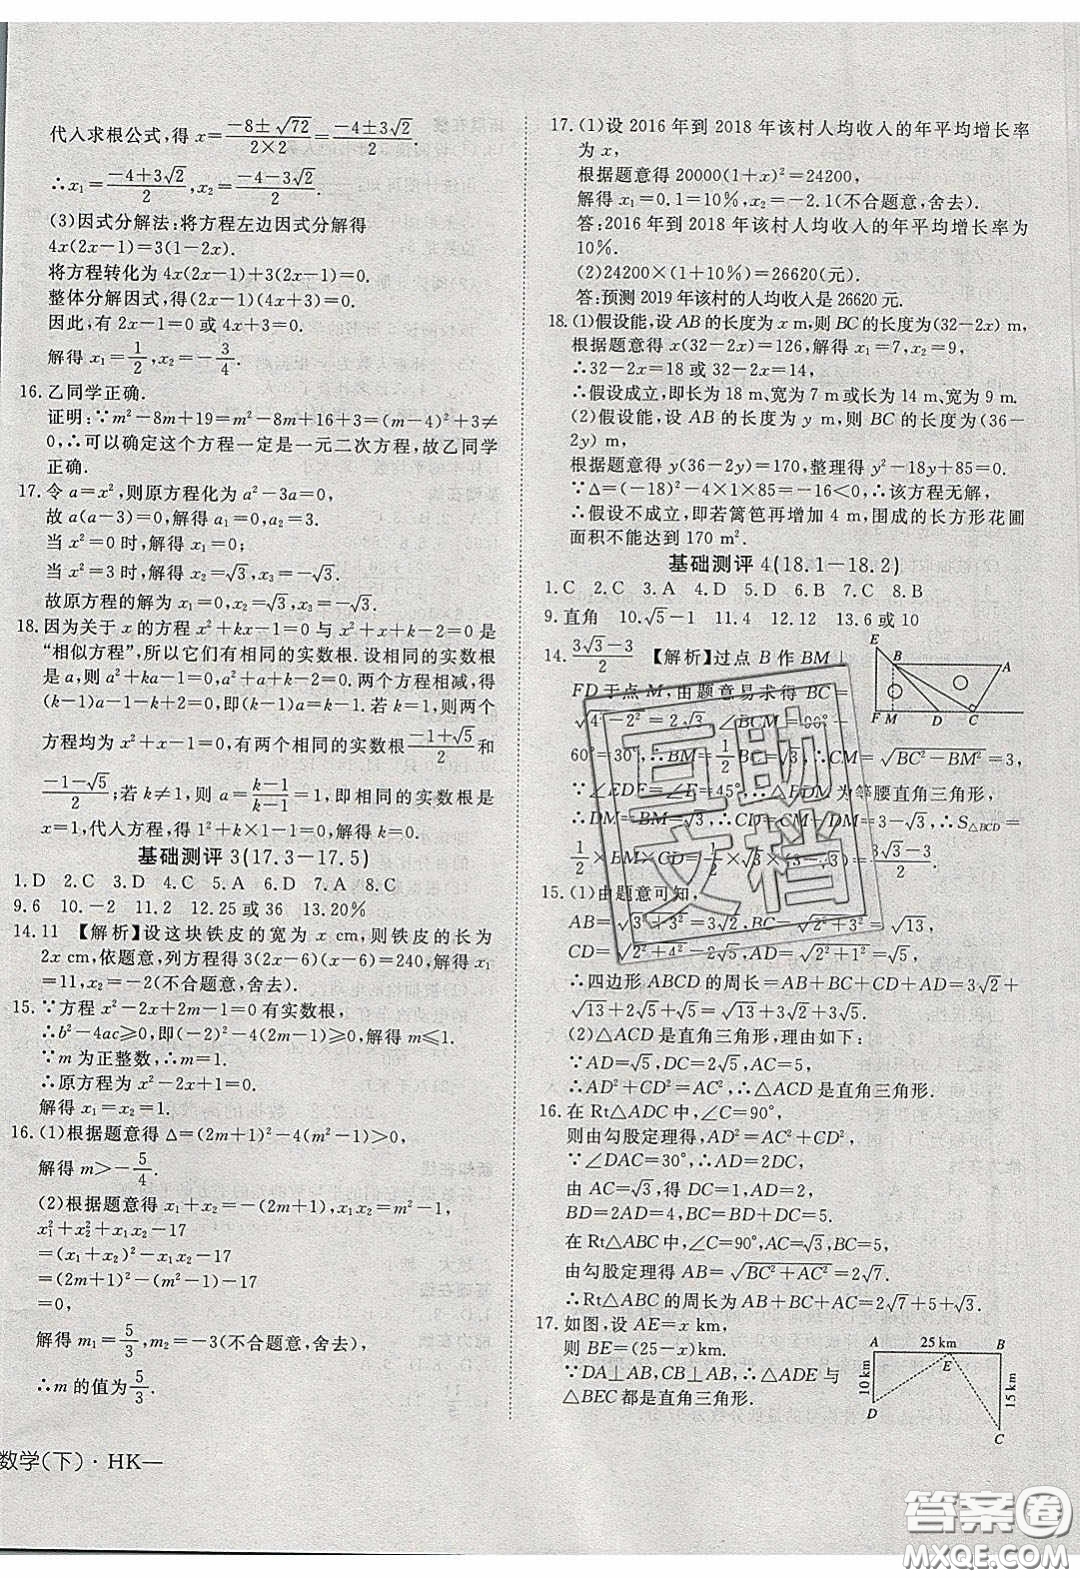 代入求根公式,得 x=(-8±√72)/(2×2)=(-4±3√2)/2.
∴x₁=(-4+3√2)/2,x₂=(-4-3√2)/2.
(3)因式分解法:将方程左边因式分解得
4x(2x-1)=3(1-2x).
将方程转化为 4x(2x-1)+3(2x-1)=0.
整体分解因式,得(2x-1)(4x+3)=0.
因此,有 2x-1=0 或 4x+3=0.
解得 x₁=1/2,x₂=-3/4.
16.乙同学正确.
证明:∵m²-8m+19=m²-8m+16+3=(m-4)²+3≠
0,∴可以确定这个方程一定是一元二次方程,故乙同学
正确.
17.令 a=x²,则原方程化为 a²-3a=0,
故 a(a-3)=0,解得 a₁=0,a₂=3.
当 x²=0 时,解得 x₁=0;
当 x²=3 时,解得 x₂=√3,x₃=-√3.
故原方程的解为 x₁=0,x₂=√3,x₃=-√3.
18.因为关于 x 的方程 x²+kx-1=0 与 x²+x-k=0 是
“相似方程”,所以它们有相同的实数根.设相同的实数根
是 a,则 a²+ka-1=0,a²+a-k=0.两个方程相减,得
(k-1)a-1-k+2=0,即(k-1)a=k-1.若 k=1,则两个
方程均为 x²+x-1=0,有两个相同的实数根(-1+√5)/2和
(-1-√5)/2;若 k≠1,则 a=(k-1)/(k-1)=1,即相同的实数根是
x=1,代入方程,得 1²+k×1-1=0,解得 k=0.
基础测评 3(17.3-17.5)
1.D 2.C 3.D 4.C 5.A 6.D 7.A 8.C
9.6 10.-2 11.2 12.25 或 36 13.20%
14.11 【解析】设这块铁皮的宽为 x cm,则铁皮的长为
2x cm,依题意,列方程得 3(2x-6)(x-6)=240,解得 x₁
=11,x₂=-2(不合题意,舍去).
15.∵方程 x²-2x+2m-1=0 有实数根,
∴b²-4ac≥0,即(-2)²-4(2m-1)≥0,解得 m≤1.
∵m 为正整数,∴m=1.
∴原方程为 x²-2x+1=0.
解得 x₁=x₂=1.
16.(1)根据题意得 Δ=(2m+1)²-4(m²-1)>0,
解得 m>-5/4.
(2)根据题意得 x₁+x₂=-(2m+1),x₁x₂=m²-1,
x₁²+x₂²+x₁x₂-17
=(x₁+x₂)²-x₁x₂-17
=(2m+1)²-(m²-1)-17
=0,
解得 m₁=5/3,m₂=-3(不合题意,舍去).
∴m 的值为5/3.
数学(下)·HK—
17.(1)设 2016 年到 2018 年该村人均收入的年平均增长率
为 x,
根据题意得 20000(1+x)²=24200,
解得 x₁=0.1=10%,x₂=-2.1(不合题意,舍去).
答:2016 年到 2018 年该村人均收入的年平均增长率为
10%.
(2)24200×(1+10%)=26620(元).
答:预测 2019 年该村的人均收入是 26620 元.
18.(1)假设能,设 AB 的长度为 x m,则 BC 的长度为(32-2x) m,
根据题意得 x(32-2x)=126,解得 x₁=7,x₂=9,
∴32-2x=18 或 32-2x=14,
∴假设成立,即长为 18 m、宽为 7 m或长为 14 m、宽为 9 m.
(2)假设能,设 AB 的长度为 y m,则 BC 的长度为(36-
2y) m,
根据题意得 y(36-2y)=170,整理得 y²-18y+85=0.
∵Δ=(-18)²-4×1×85=-16<0,∴该方程无解,
∴假设不成立,即若篱笆再增加 4 m,围成的长方形花圃
面积不能达到 170 m².
基础测评 4(18.1-18.2)
1.C 2.C 3.C 4.D 5.D 6.B 7.C 8.B
9.直角 10.√5-1 11.4 12.12 13.6 或 10
14.(3√3-3)/2 【解析】过点 B 作 BM⊥
FD于点 M,由题意易求得 BC=
√4²-2²=2√3,∠BCM=90°-
60°=30°,∴BM=1/2BC=√3,∴CM=√BC²-BM²=3,
∵∠EDF=∠E=45°,∴△BDM 为等腰直角三角形,
∴DM=BM=√3,∴CD=CM-DM=3-√3,∴S△BCD=
1/2×BM×CD=1/2×√3×(3-√3)=(3√3-3)/2.
E
B
A
F M D C
15.(1)由题意可知,
AB=√3²+3²=3√2,BC=√2²+3²=√13,
CD=√2²+4²=2√5,AD=√1²+2²=√5,
∴四边形 ABCD 的周长=AB+BC+CD+AD=3√2+
√13+2√5+√5=3√2+√13+3√5.
(2)△ACD 是直角三角形,理由如下:
∵AD=√5,DC=2√5,AC=5,
∴AD²+CD²=AC²,∴△ACD 是直角三角形.
16.在 Rt△ADC 中,∠C=90°,
则由勾股定理得,AD²=AC²+CD²,
∵∠DAC=30°,∴AD=2DC,
由 AC=√3,得 DC=1,AD=2,
BD=2AD=4,BC=BD+DC=5.
在 Rt△ABC 中,∠C=90°,AC=√3,BC=5,
由勾股定理得 AB=√BC²+AC²=2√7,
∴Rt△ABC 的周长为 AB+BC+AC=2√7+5+√3.
17.如图,设 AE=x km,
则 BE=(25-x)km.
∵DA⊥AB,CB⊥AB,∴△ADE 与
△BEC 都是直角三角形.
A 25 km B
E
10 km
15 km
D
C
百助文档
答案圈
MXQE.COM